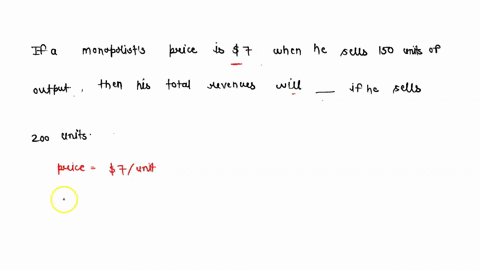 If a monopolist's price is $7 when he sells 150 units of
output, then his total revenues will __ if he sells
200 units.
price = $7/unit